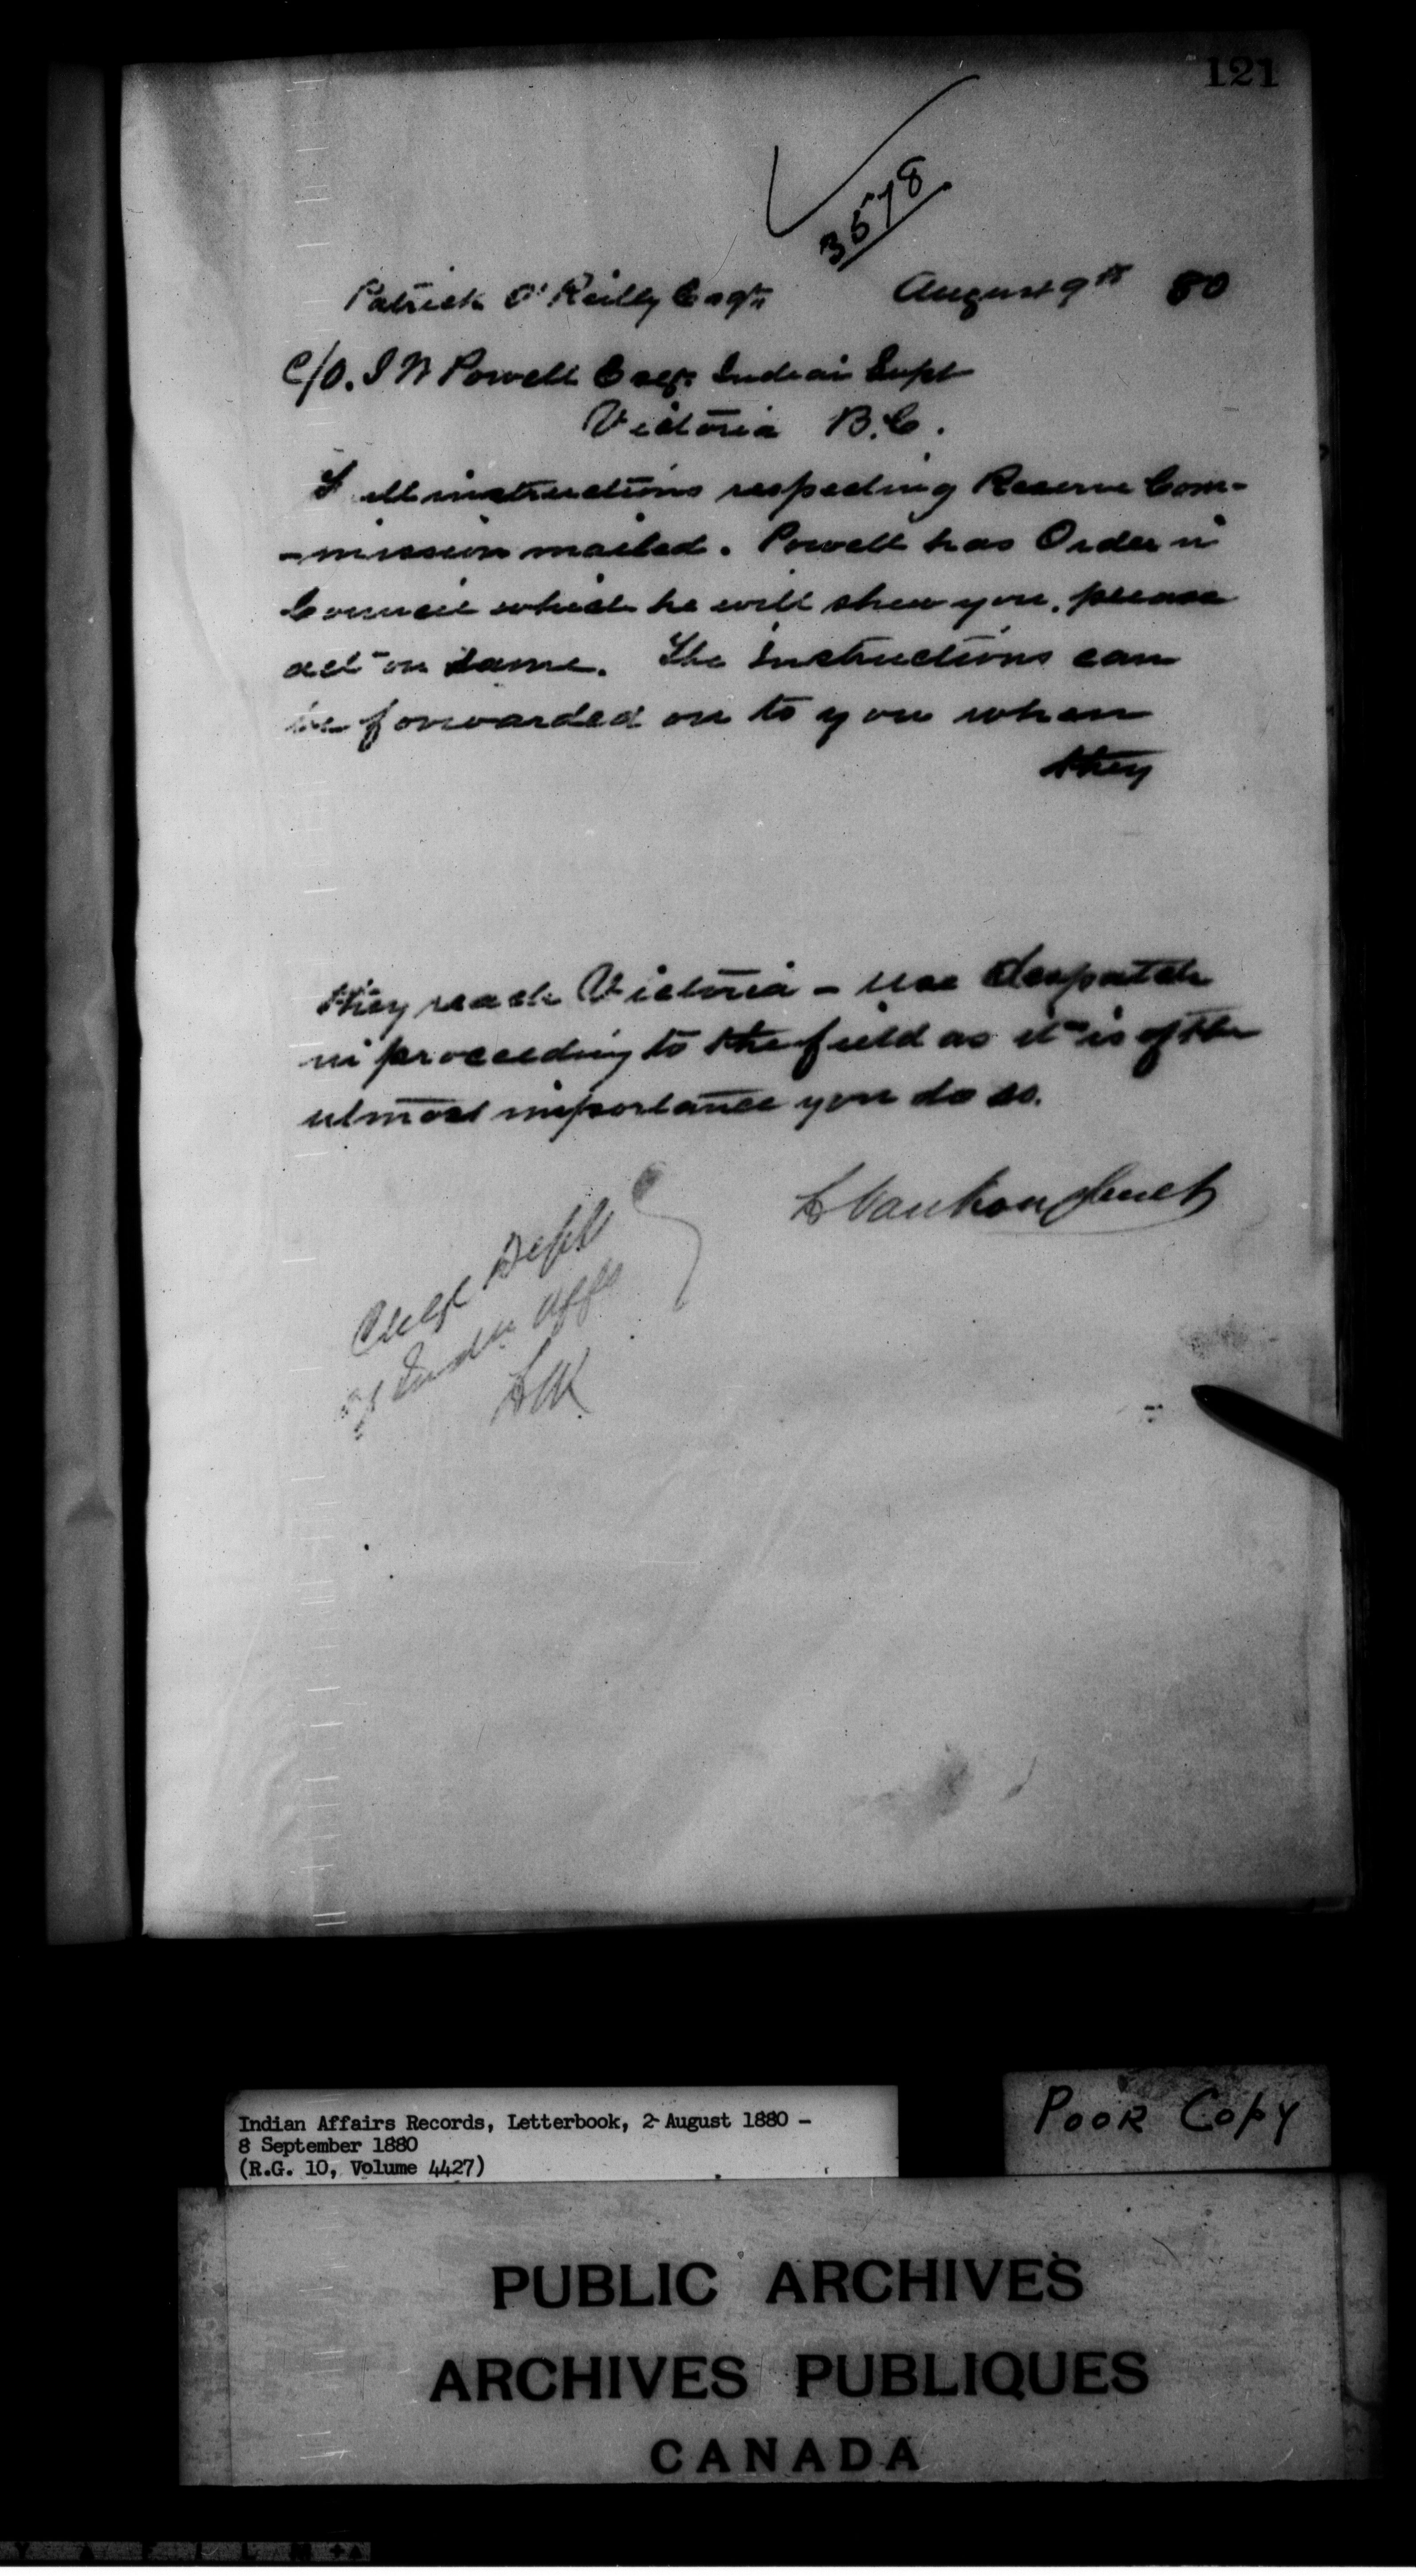 121
3578
Patrick O'Reilly Esqre August 9th 80
C/O. I W Powell Esqr. Indian Supt
Victoria B.C.
Full instructions respecting Reserve Com-
-mission mailed. Powell has Order in
Council which he will shew you, please
act on same. The instructions can
be forwarded on to you when
they
they reach Victoria - use despatch
in proceeding to the field as it is of the
utmost importance you do so.
L Vankoughnet
Chge Dept
of Indn Affs
LVK
Indian Affairs Records, Letterbook, 2 August 1880 -
8 September 1880
(R.G. 10, Volume 4427)
POOR COPY
PUBLIC ARCHIVES
ARCHIVES PUBLIQUES
CANADA